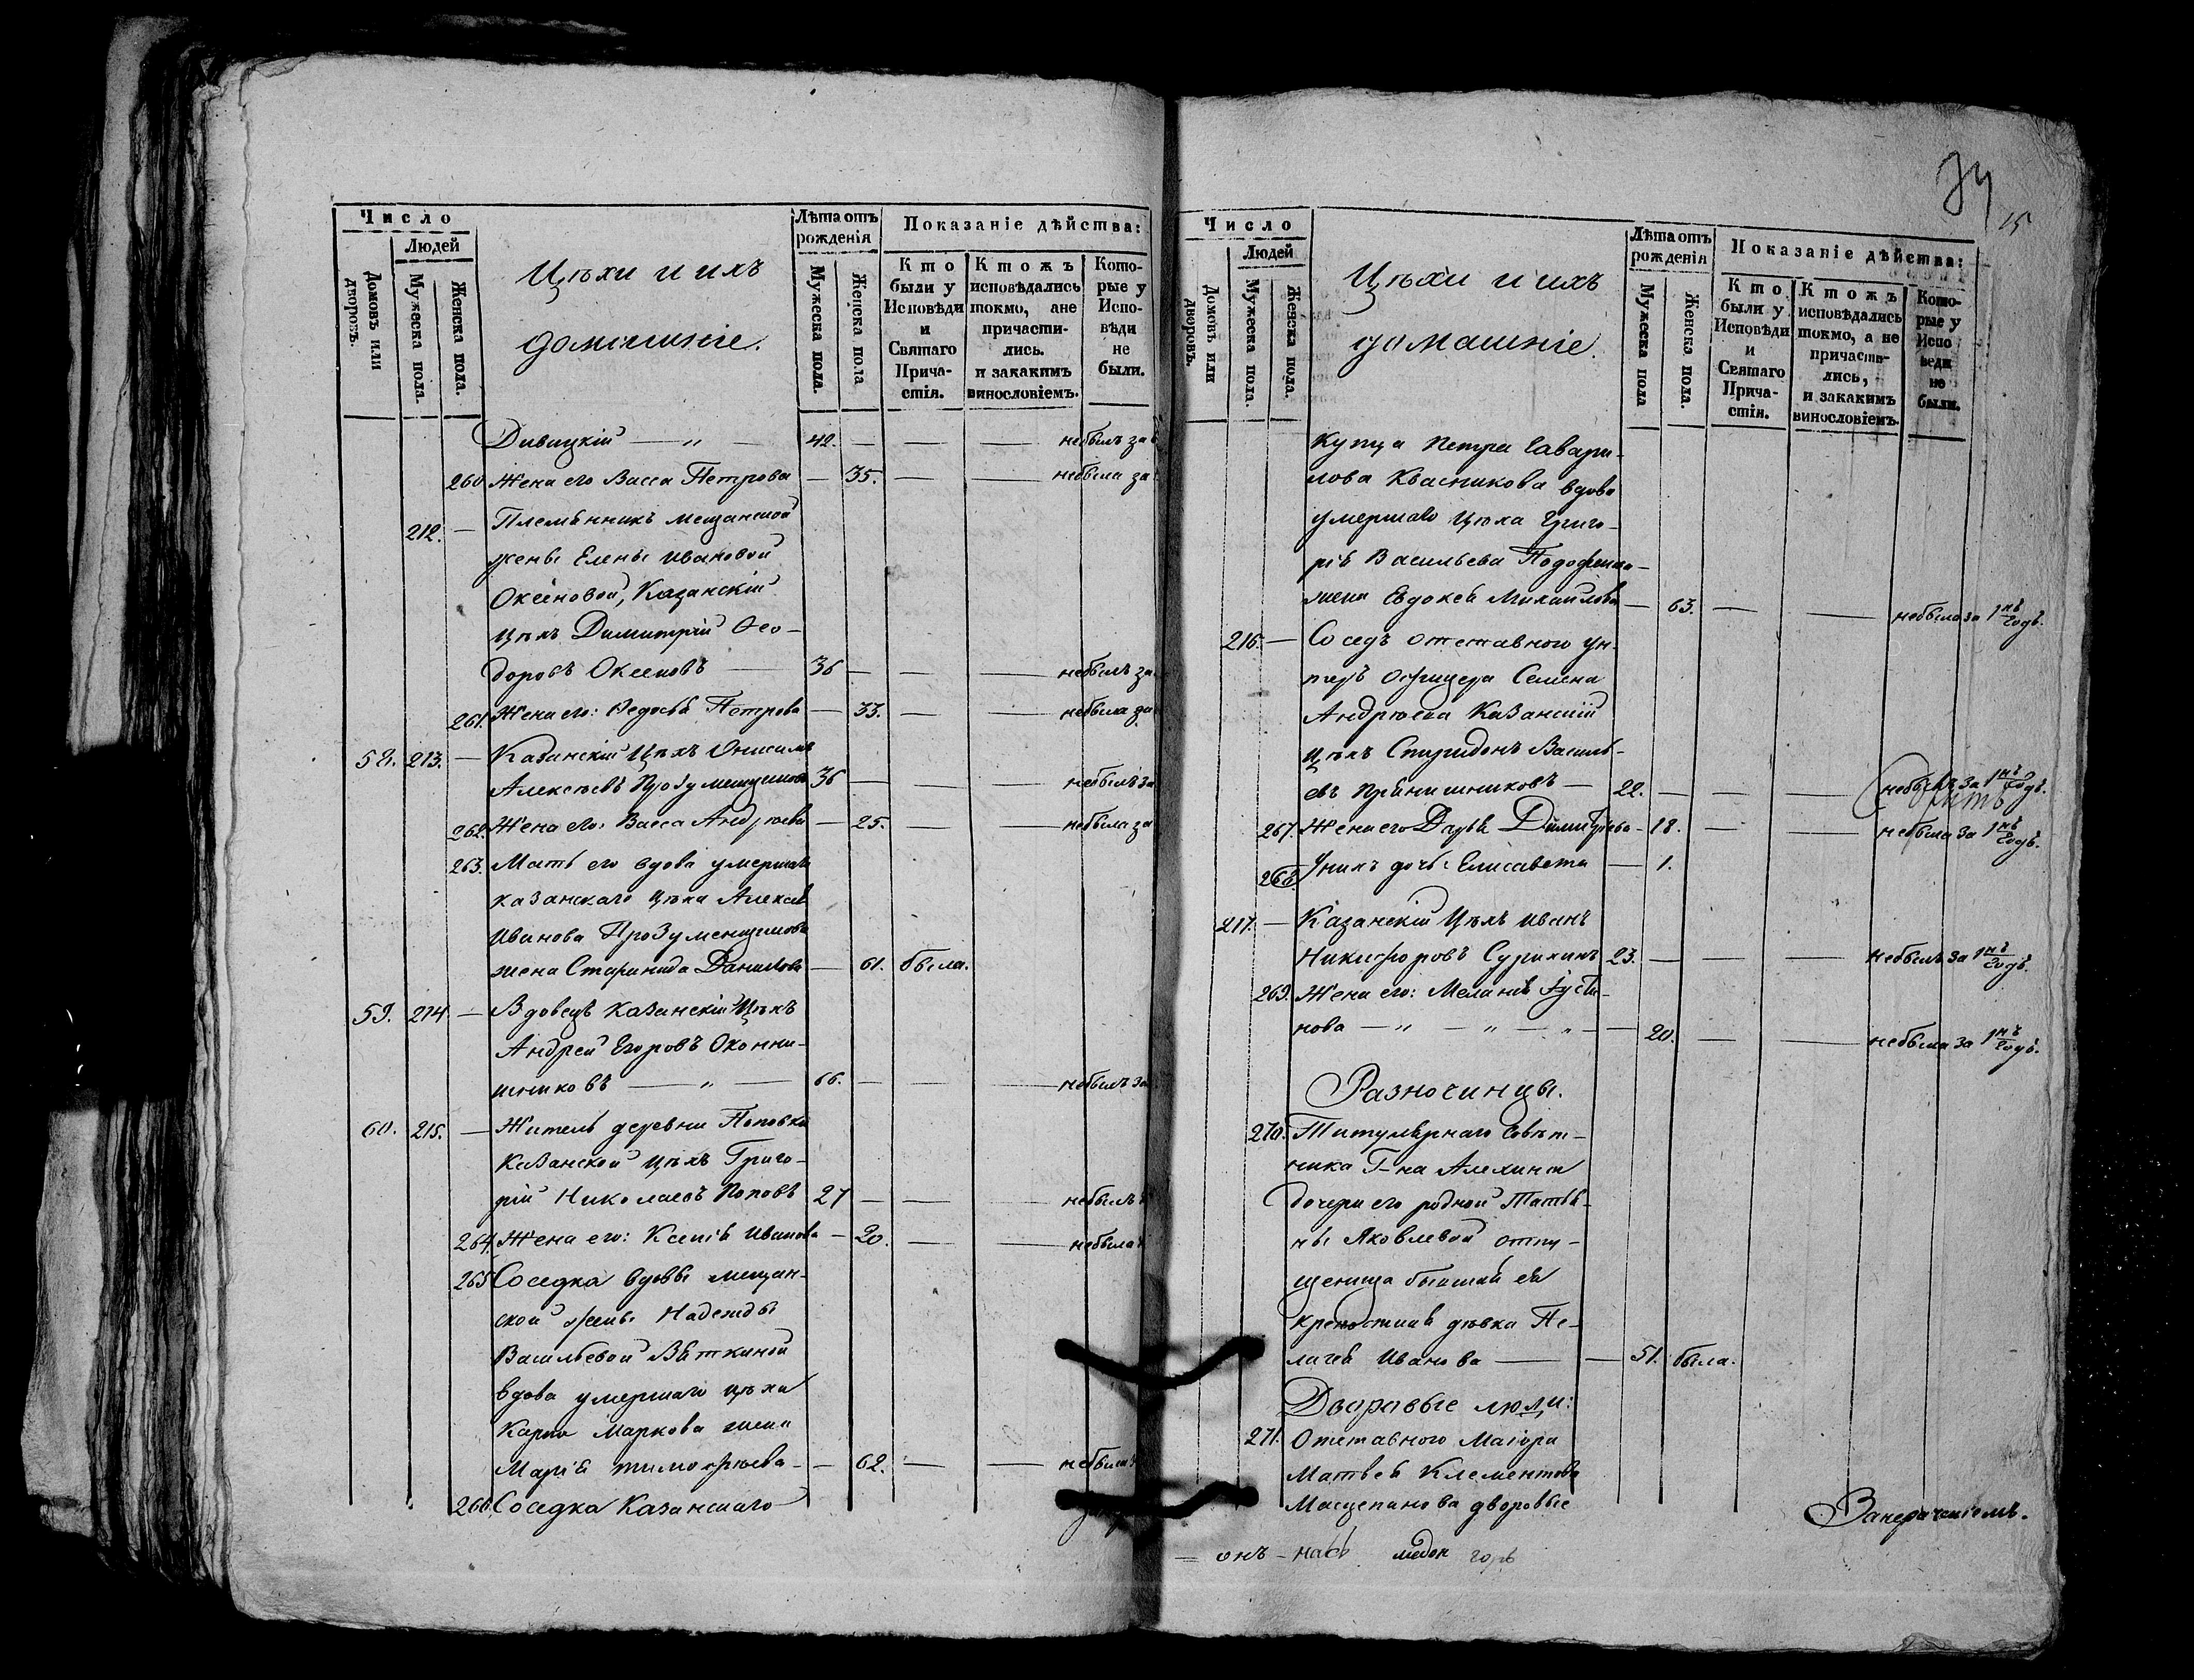 Число
Людей
Домовъ или дворовъ.
Мужеска пола.
Женска пола.
Цѣхи и ихъ
домашніе.
Лѣта отъ рожденія
Мужеска пола.
Женска пола
Показаніе дѣйства:
Кто были у Исповѣди и Святаго Прича-стія.
Ктожъ исповѣдались токмо, ане причасти-лись. и закакимъ винословіемъ.
Кото-рые у Испо-вѣди не были.
Дивицкій — „ — 42. — — — небылъ за
260 Жена его Васса Петрова — 35. — — небыла за
212. — Племянникъ мещанской
жены Елены Ивановой
Оксеновой, Казанскій
цѣхъ Димитрій Ѳео-
доровъ Оксеновъ — 36 — — — небылъ за
261. Жена его: Ѳедосья Петрова — 33. — — небыла за
58. 213. — Казанскій Цѣхъ Онисимъ
Алексѣевъ Прозументщиковъ 36 — — — небылъ за
262. Жена его: Васса Андреева — 25. — — небыла за
263. Мать его вдова умершаго
казанскаго цѣха Алексея
Иванова Прозументщикова
жена Стефанида Данилова — 61. была.
59. 214 — Вдовецъ Казанскій Цѣхъ
Андрей Егоровъ Оконни-
шниковъ — „ — 66. — — — небылъ за
60. 215. — Житель деревни Поповки
Казанской цѣхъ Григо-
рій Николаевъ Поповъ 27 — — — небылъ
264. Жена его: Ксенія Иванова — 20. — — небыла
265 Соседка вдовы мещан-
ской жены Надежды
Васильевой Вяткиной
вдова умершаго цѣха
Карпа Маркова жена
Марія Тимофѣева — 62. — — небыла
266. Соседка Казанскаго
34
15
Число
Людей
Домовъ или дворовъ.
Мужеска пола.
Женска пола.
Цѣхи и ихъ
домашніе.
Лѣта отъ рожденія
Мужеска пола
Женска пола.
Показаніе дѣйства:
Кто были у Исповѣди и Святаго Прича-стія.
Ктожъ исповѣдались токмо, а не причасти-лись, и закакимъ винословіемъ.
Кото-рые у Испо вѣди не были.
купца Петра Гаври-
лова Квасникова вдова
умершаго цѣха Григо-
рія Васильева
жена Евдокея Михайлова — 63. — — небыла за 1нъ годъ.
216. — Соседъ отставного ун-
теръ офицера Семена
Андреева Казанскій
цѣхъ Спиридонъ Василь-
евъ Прянишниковъ — 22. — — — небылъ за 1нъ годъ.
267 Жена его Дарья Димитріева — 18. — — небыла за 1нъ годъ.
268. Уних дочь: Елисавета — 1.
217. — Казанскій Цѣхъ Иванъ
Никифоровъ Сурихинъ 23. — — — небылъ за 1нъ годъ.
269. Жена его: Меланія Густи-
нова — „ — „ — „ — 20. — — небыла за 1нъ годъ.
Разночинцы.
270. Титулярнаго совѣт-
ника Г-на Алехина
дочери его родной Татья-
ны Яковлевой отпу-
щеница бывшая ея
крепостная дѣвка Пе-
лагея Иванова — — 51. была.
Дворовые люди:
271. Отставного Маіора
Матвея Клементова
Мосцепанова дворовые
Занерачениемъ.